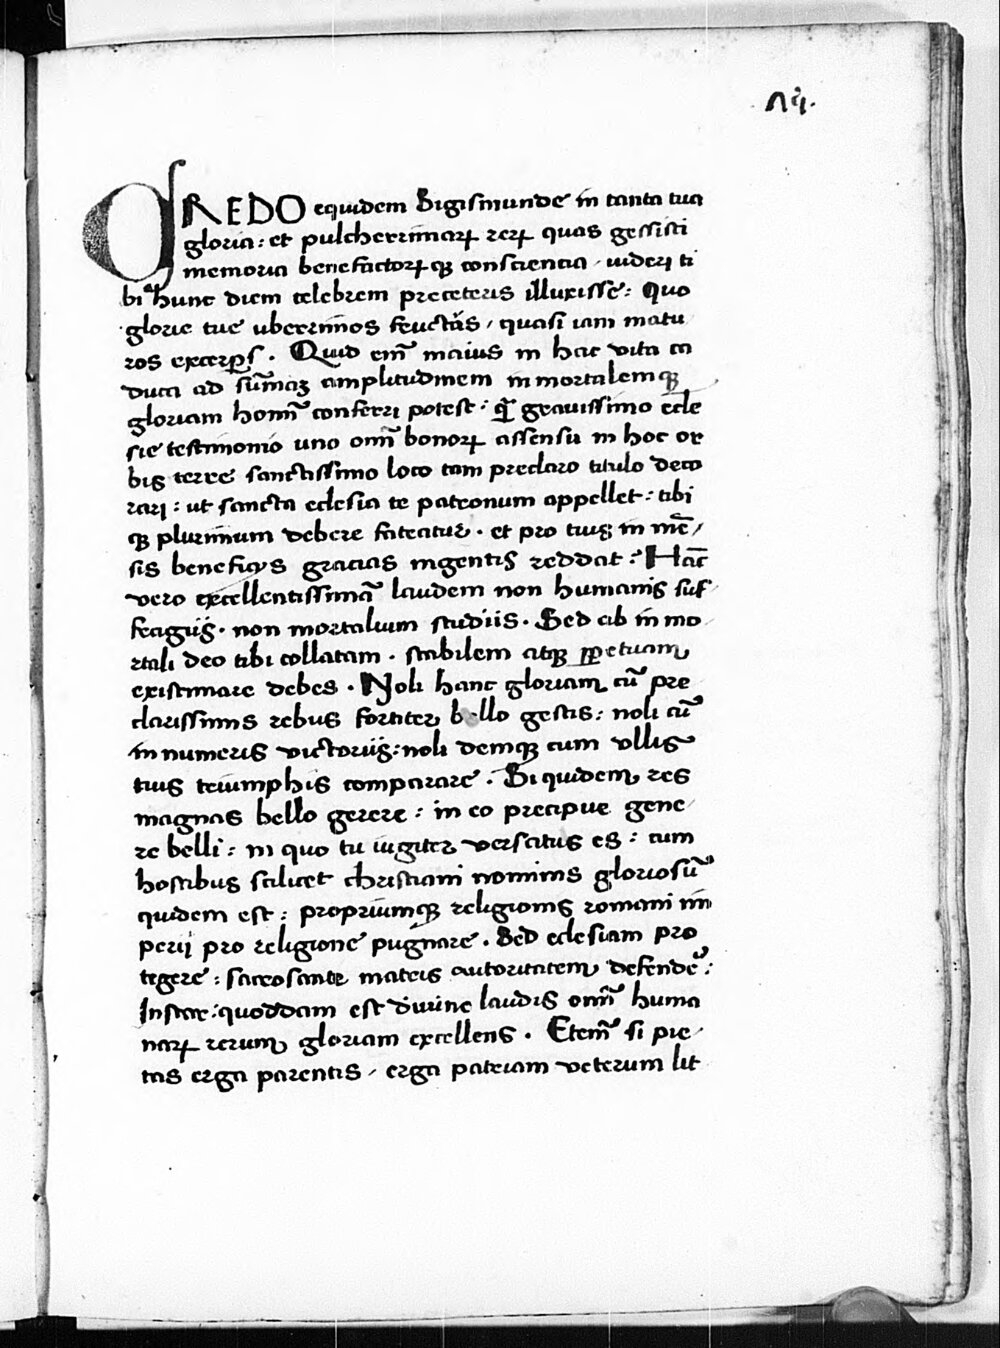 CREDO equidem Sigismunde in tanta tua
gloria: et pulcherrimarꝝ rerꝝ quas gessisti
memoria benefactorꝝ qꝫ consciencia / uideri ti
bi hunc diem celebrem preceteris illuxisse: Quo
glorie tue uberrimos fructus / quasi iam matu
ros excerpis. Quid em̅ maius in hac vita ca
duca ad su̅maꝫ amplitudinem inmortalemqꝫ
gloriam homi̅ conferri potest: q̅ gravissimo ecle
sie testimonio uno om̅i bonorꝝ assensu in hoc or
bis terre sanctissimo loco tam preclaro titulo deco
rari: ut sancta eclesia te patronum appellet: tibi
qꝫ plurimum debere fateatur. et pro tuis in me̅/
sis beneficijs gracias ingentis reddat: Hac̅
vero excellentissima̅ laudem non humanis suf
fragiis. non mortalium studiis. Sed ab inmo
rtali deo tibi collatam. stabilem atqꝫ ꝑpetuam
existimare debes. Noli hanc gloriam cu̅ pre
clarissimis rebus fortiter bello gestis: noli cu̅
innumeris victoriis: noli demqꝫ cum vllis
tuis triumphis comparare. Siquidem res
magnas bello gerere: in eo precipue gene
re belli: in quo tu iugiter versatus es: cum
hostibus scilicet christiani nominis gloriosu̅
quidem est: propriumqꝫ religionis romani im
perij pro religione pugnare. Sed eclesiam pro
tegere: sacrosante matris autoritatem defende̅:
Instar: quoddam est divine laudis om̅i huma
narꝝ rerum gloriam excellens. Etem̅ si pie
tas erga parentis / erga patriam veterum lit